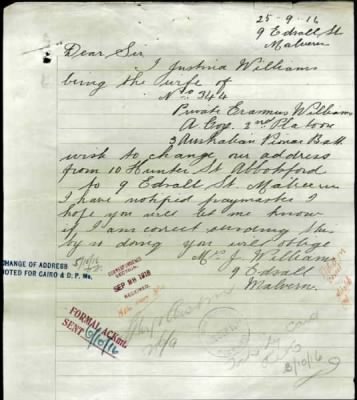 25-9-16
9 Edsall St
Malvern
Dear Sir
I Justina Williams
being the wife of
No 344
Private Erasmus Williams
A Coy 2nd Platoon
3 Australian Pioneer Batt
wish to change our address
from 10 Hunter St Abbotsford
to 9 Edsall St Malvern
I have notified paymaster I
hope you will let me know
if I am correct sending this
by so doing you will oblige
Mrs J. Williams
9 Edsall
Malvern
CHANGE OF ADDRESS
NOTED FOR CAIRO & D. P. Mo.
5/10/16
RECEIVED
FORMAL ACK
SENT 6/10/16